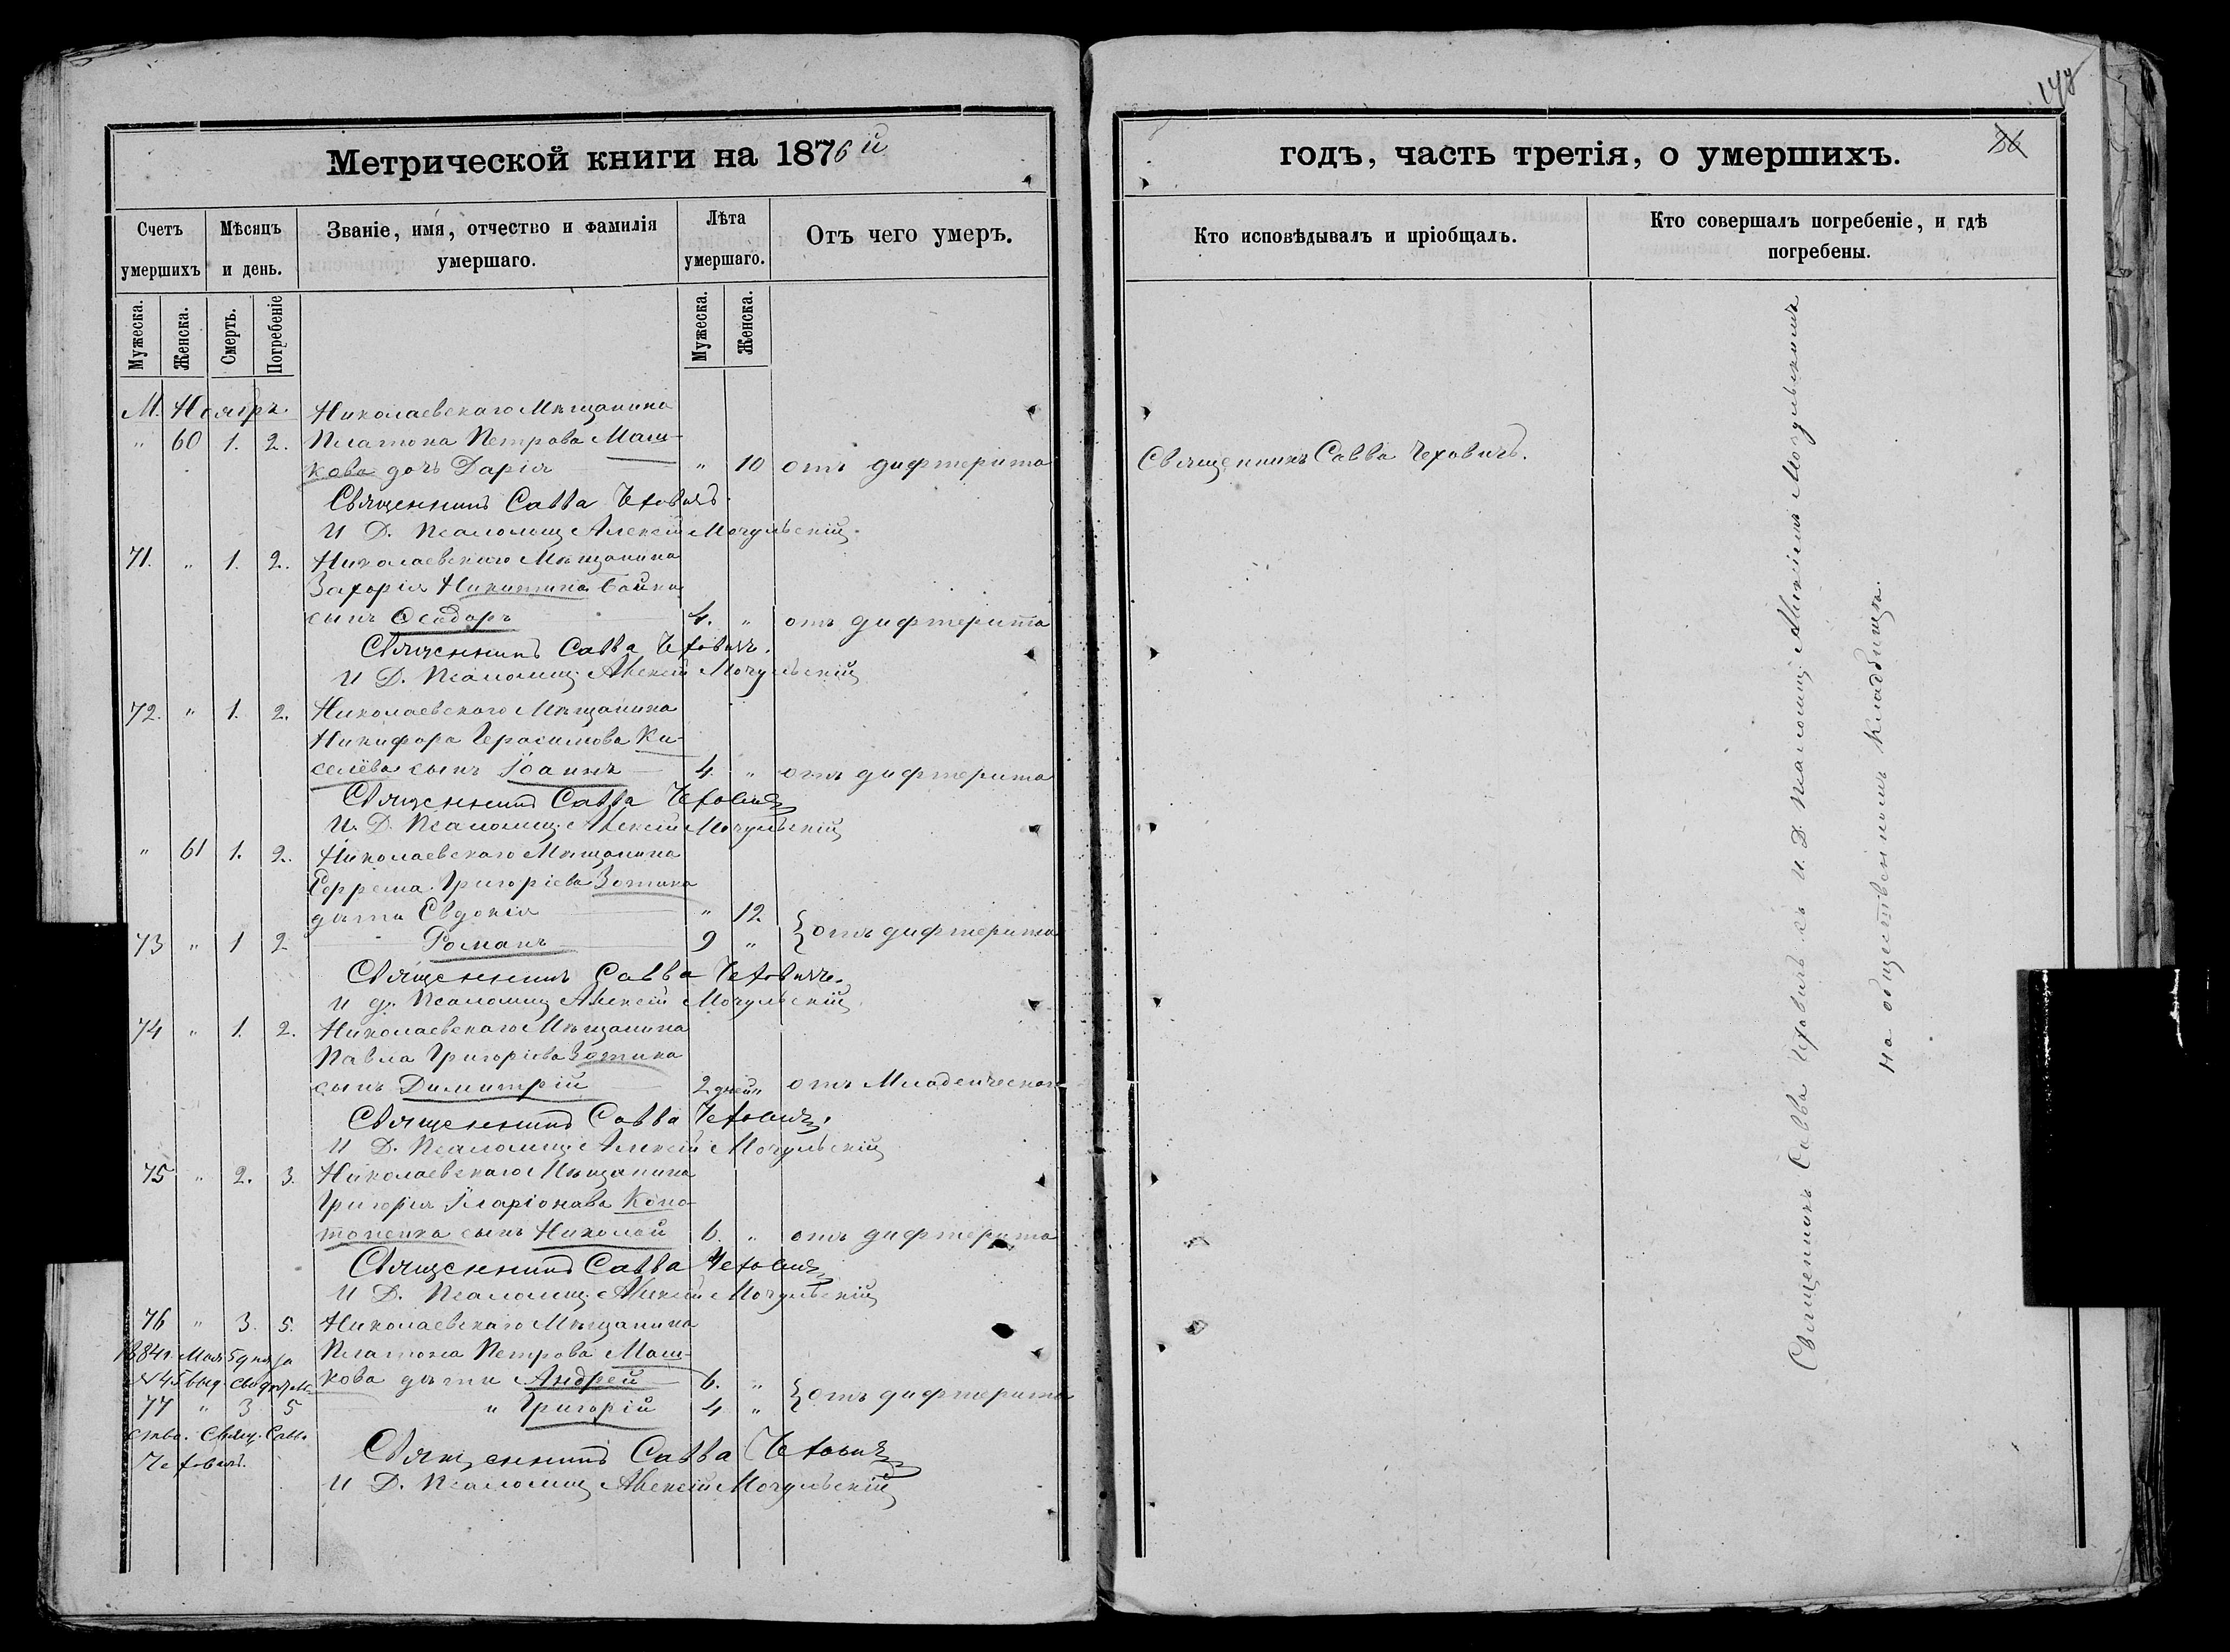 Метрической книги на 1876й
Счетъ умершихъ
Мѣсяцъ и день.
Званіе, имя, отчество и фамилія умершаго.
Лѣта умершаго.
Отъ чего умеръ.
Мужеска. Женска. Смерть. Погребеніе Мужеска. Женска.
М. Ноябрь. Николаевскаго Мѣщанина
" 60 1. 2. Платона Петрова Маш-
кова дочь Дарія " 10 отъ дифтерита
Священникъ Савва Чеховичъ.
И Д. Псаломщ. Алексій Мочульскій.
71. " 1. 2. Николаевскаго Мѣщанина
Захорія Никитина
сынъ Ѳеодоръ 4. " отъ дифтерита
Священникъ Савва Чеховичъ.
И Д. Псаломщ. Алексій Мочульскій
72. " 1. 2. Николаевскаго Мѣщанина
Никифора Герасимова Ки-
селёва сынъ Іоаннъ 4. " отъ дифтерита
Священникъ Савва Чеховичъ
И. Д. Псаломщ. Алексій Мочульскій
" 61 1. 2. Николаевскаго Мѣщанина
Ефрема Григоріева Зотика
дѣти Евдокія " 12.
73 " 1 2 Романъ 9 " отъ дифтерита
Священникъ Савва Чеховичъ.
И д. Псаломщ. Алексій Мочульскій.
74 " 1. 2. Николаевскаго Мѣщанина
Павла Григоріева Зотика
сынъ Димитрій 2 дней " отъ Младенческой
Священникъ Савва Чеховичъ.
И Д. Псаломщ. Алексій Мочульскій
75 " 2. 3. Николаевскаго Мѣщанина
Григорія Иларіонова Коно-
топенка сынъ Николай 6. " отъ дифтерита
Священникъ Савва Чеховичъ
И Д. Псаломщ. Алексій Мочульскій
76 " 3. 5. Николаевскаго Мѣщанина
1884г. Мая 5 дня за Платона Петрова Маш-
№ 45 выд. свидѣтель кова дѣти Андрей 6. "
77 " 3 5 " Григорій 4 " отъ дифтерита
ство. Свящ. Савва
Чеховичъ.
Священникъ Савва Чеховичъ
И Д. Псаломщ. Алексій Мочульскій
годъ, часть третія, о умершихъ.
36
Кто исповѣдывалъ и пріобщалъ.
Кто совершалъ погребеніе, и гдѣ погребены.
Священникъ Савва Чеховичъ.
Священникъ Савва Чеховичъ съ И. Д. Псаломщ. Алексіемъ Мочульскимъ
на общественномъ кладбищѣ.